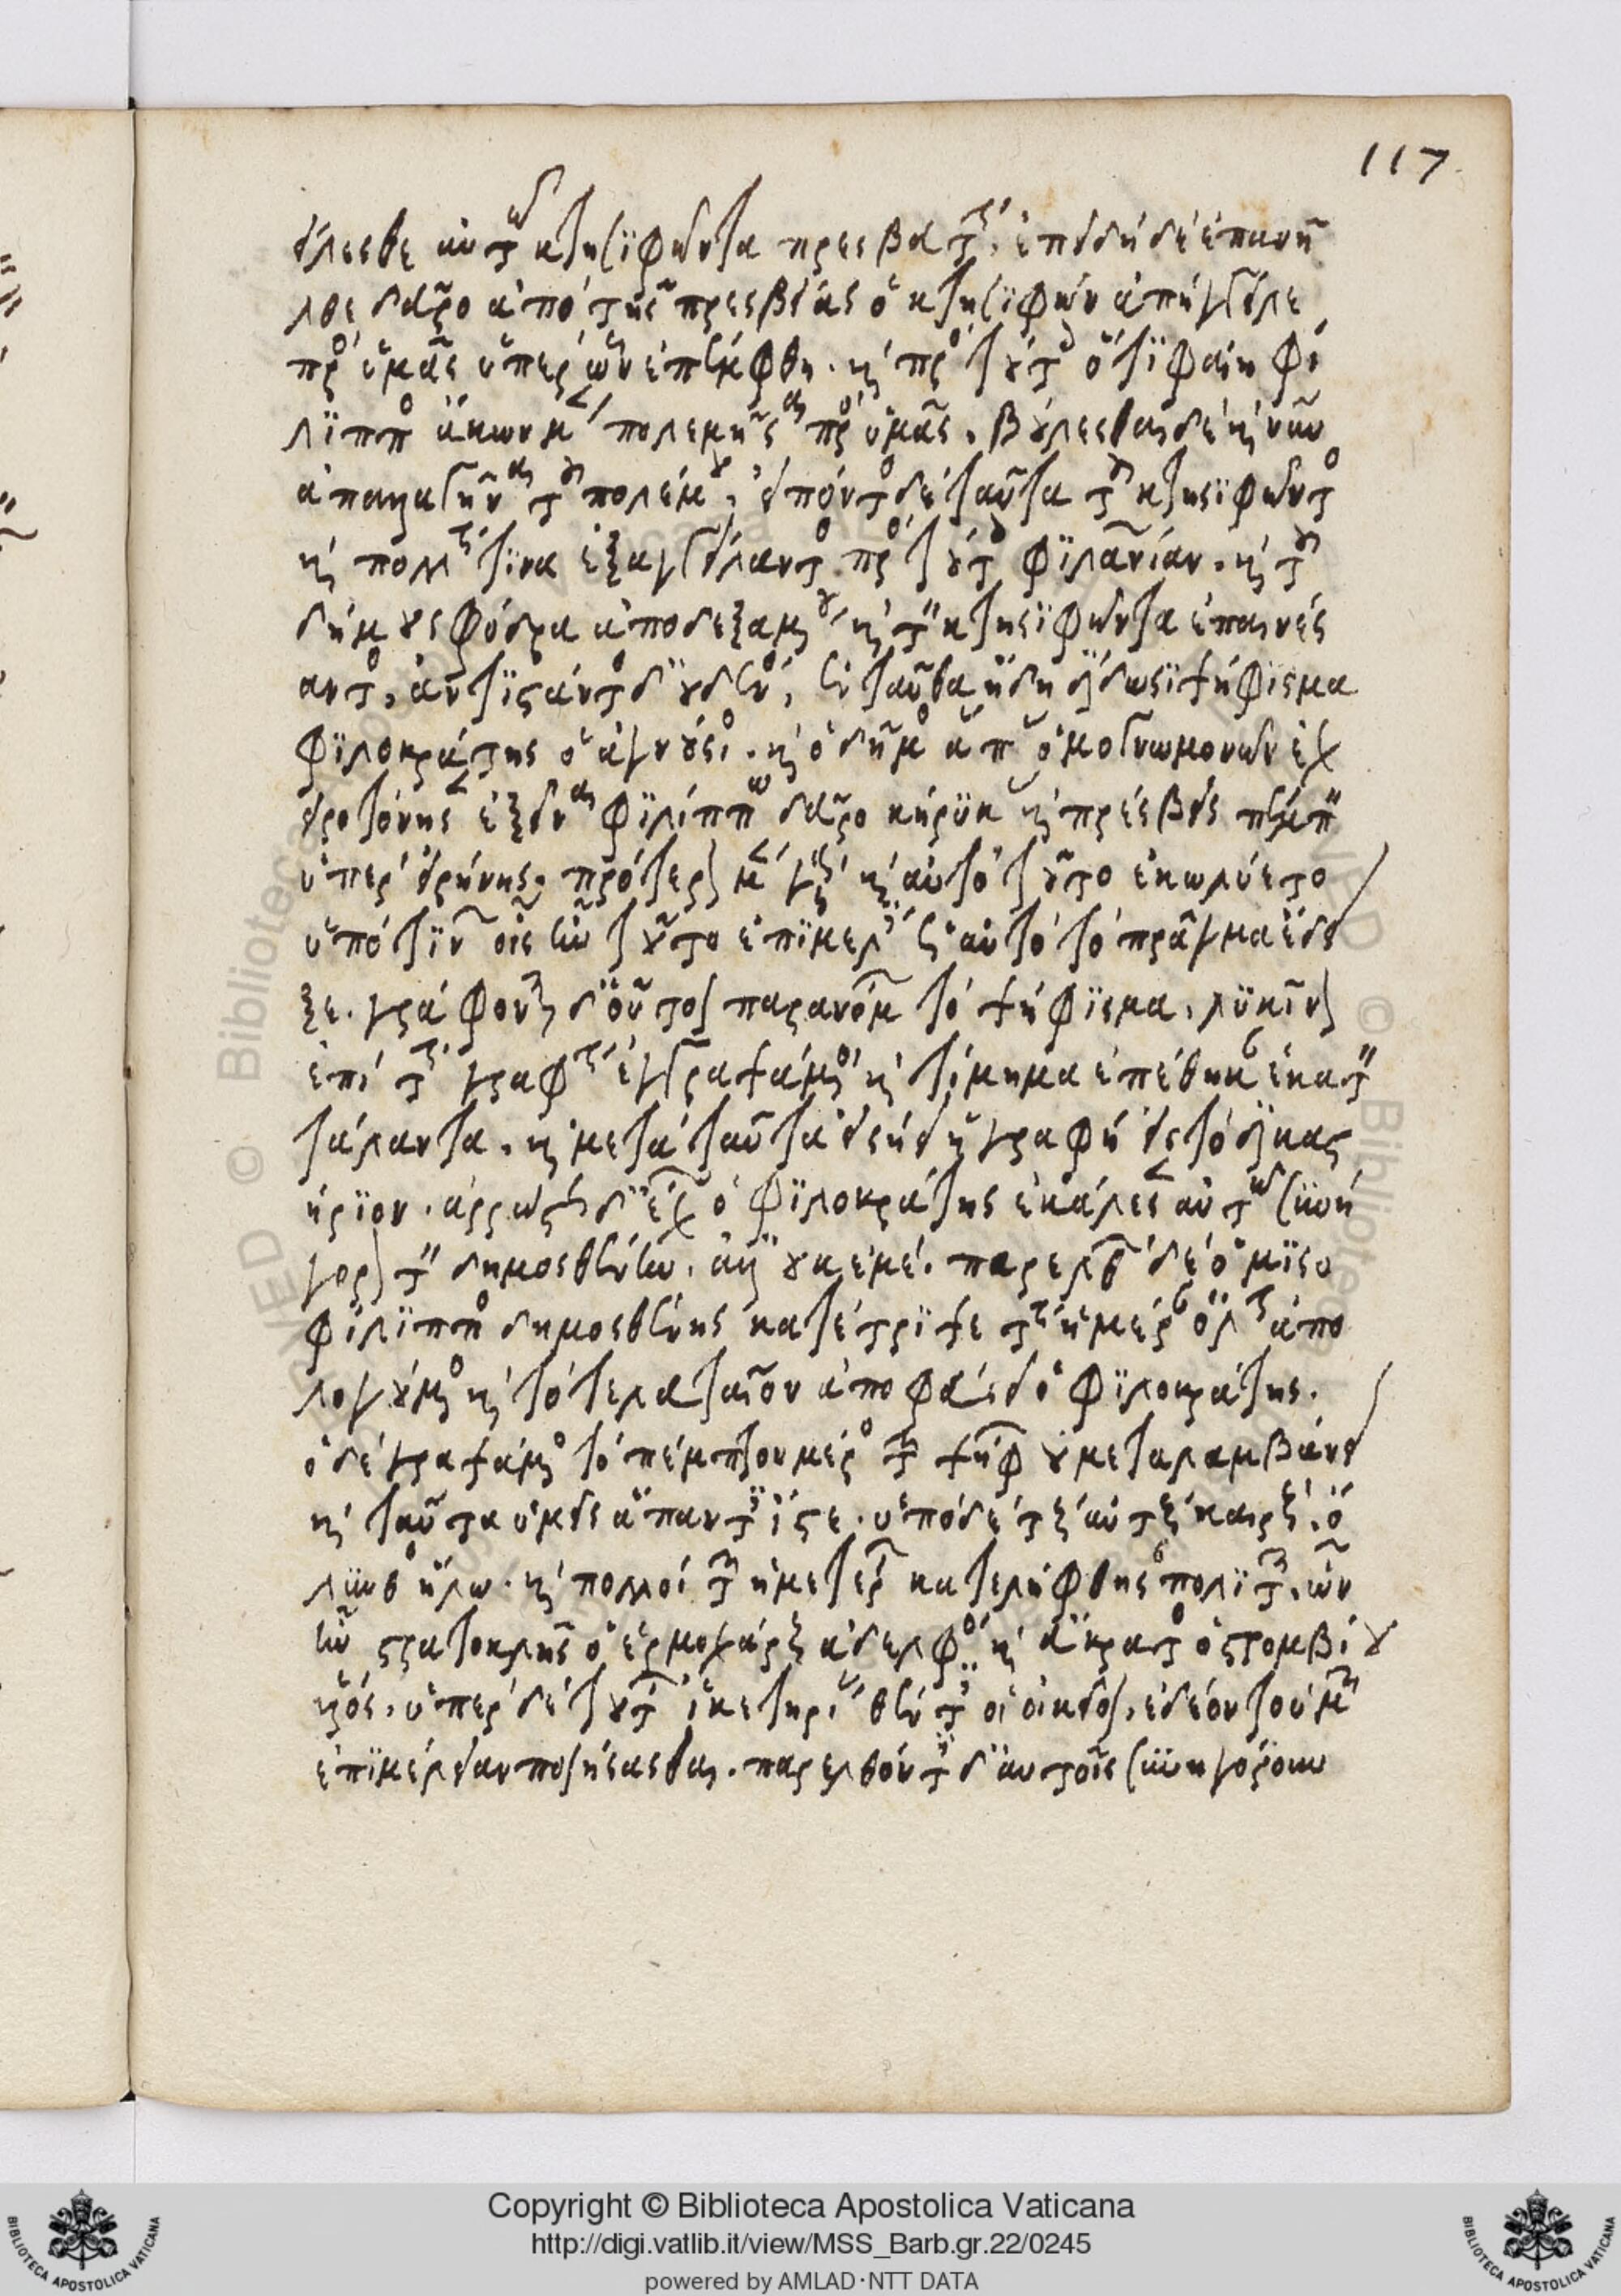 117
είλεσθε αὐτῶ κτησιφῶντα πρεσβευτήν. ἐπειδὴ δὲ ἐπανῆ
λθε δεῦρο ἀπὸ τῆς πρεσβείας ὁ κτησιφῶν ἀπήγγειλε
πρὸς ὑμᾶς ὑπὲρ ὧν ἐπέμφθη. καὶ πρὸς τούτοις ὅτι φαίη φί
λιππος ἄκων μὲν πολεμῆσαι πρὸς ὑμᾶς. βούλεσθαι δὲ καὶ νῦν
ἀπαλλαγῆναι τοῦ πολέμου. εἰπόντος δὲ ταῦτα τοῦ κτησιφῶντος
καὶ πολλήν τινα ἐξαγγείλαντος πρὸς τούτοις φιλανίαν. καὶ τοῦ
δήμου σφόδρα ἀποδεξαμένου καὶ τὸν κτησιφῶντα ἐπαινέσ
αντος, ἀντιστάντος δ' οὐδενός, ἐνταῦθα ἤδη δίδωσι ψήφισμα
φιλοκράτης ὁ ἁγνούσιος. καὶ ὁ δῆμος ἅπας ὁμογνωμονῶν ἐχ
ειροτόνησεν ἐξεῖναι φιλίππω δεῦρο κήρυκας καὶ πρέσβεις πέμπειν
ὑπὲρ εἰρήνης. πρότερον μὲν γὰρ καὶ αὐτὸ τοῦτο ἐκωλύετο
ὑπό τινων οἷς ἦν τοῦτο ἐπιμελὲς ὡς αὐτὸ τὸ πρᾶγμα ἔδει
ξε. γράφονται δ' οὗτοι παρανόμων τὸ ψήφισμα, λυκῖνον
ἐπὶ τὴν γραφὴν ἐγγραψάμενοι καὶ τίμημα ἐπέθηκαν ἑκατὸν
τάλαντα. καὶ μετὰ ταῦτα εἰσήει ἡ γραφὴ εἰς τὸ δικαστ
ήριον. ἀρρώστως δ' ἔχων ὁ φιλοκράτης ἐκάλεσεν αὐτῶ συνή
γορον τὸν δημοσθένην. ἀλλ' οὐκ ἐμέ. παρελθὼν δὲ ὁ μισο
φίλιππος δημοσθένης κατέτριψε τὴν ἡμέραν ὅλην ἀπο
λογούμενος καὶ τὸ τελευταῖον ἀποφεύγει ὁ φιλοκράτης.
ὁ δὲ γραψάμενος τὸ πέμπτον μέρος τῶν ψήφων οὐ μεταλαμβάνει
καὶ ταῦτα ὑμεῖς ἅπαντες ἴστε. ὑπὸ δὲ τοὺς αὐτοὺς καιροὺς, ὄ
λυνθος ἥλω. καὶ πολλοὶ τῶν ἡμετέρων κατελήφθησαν πολιτῶν, ὧν
ἦν στρατοκλῆς ὁ ἑρμοχάρους ἀδελφὸς καὶ εὔκρατος ὁ στρομβίχου
υἱός. ὑπὲρ δὲ τούτων ἱκετηρίαν θέντες οἱ οἰκεῖοι, ἐδέοντο ὑμῶν
ἐπιμέλειαν ποιήσασθαι. παρελθόντες δ' αὐτοῖς συνηγόρουν
Copyright © Biblioteca Apostolica Vaticana
http://digi.vatlib.it/view/MSS_Barb.gr.22/0245
powered by AMLAD·NTT DATA